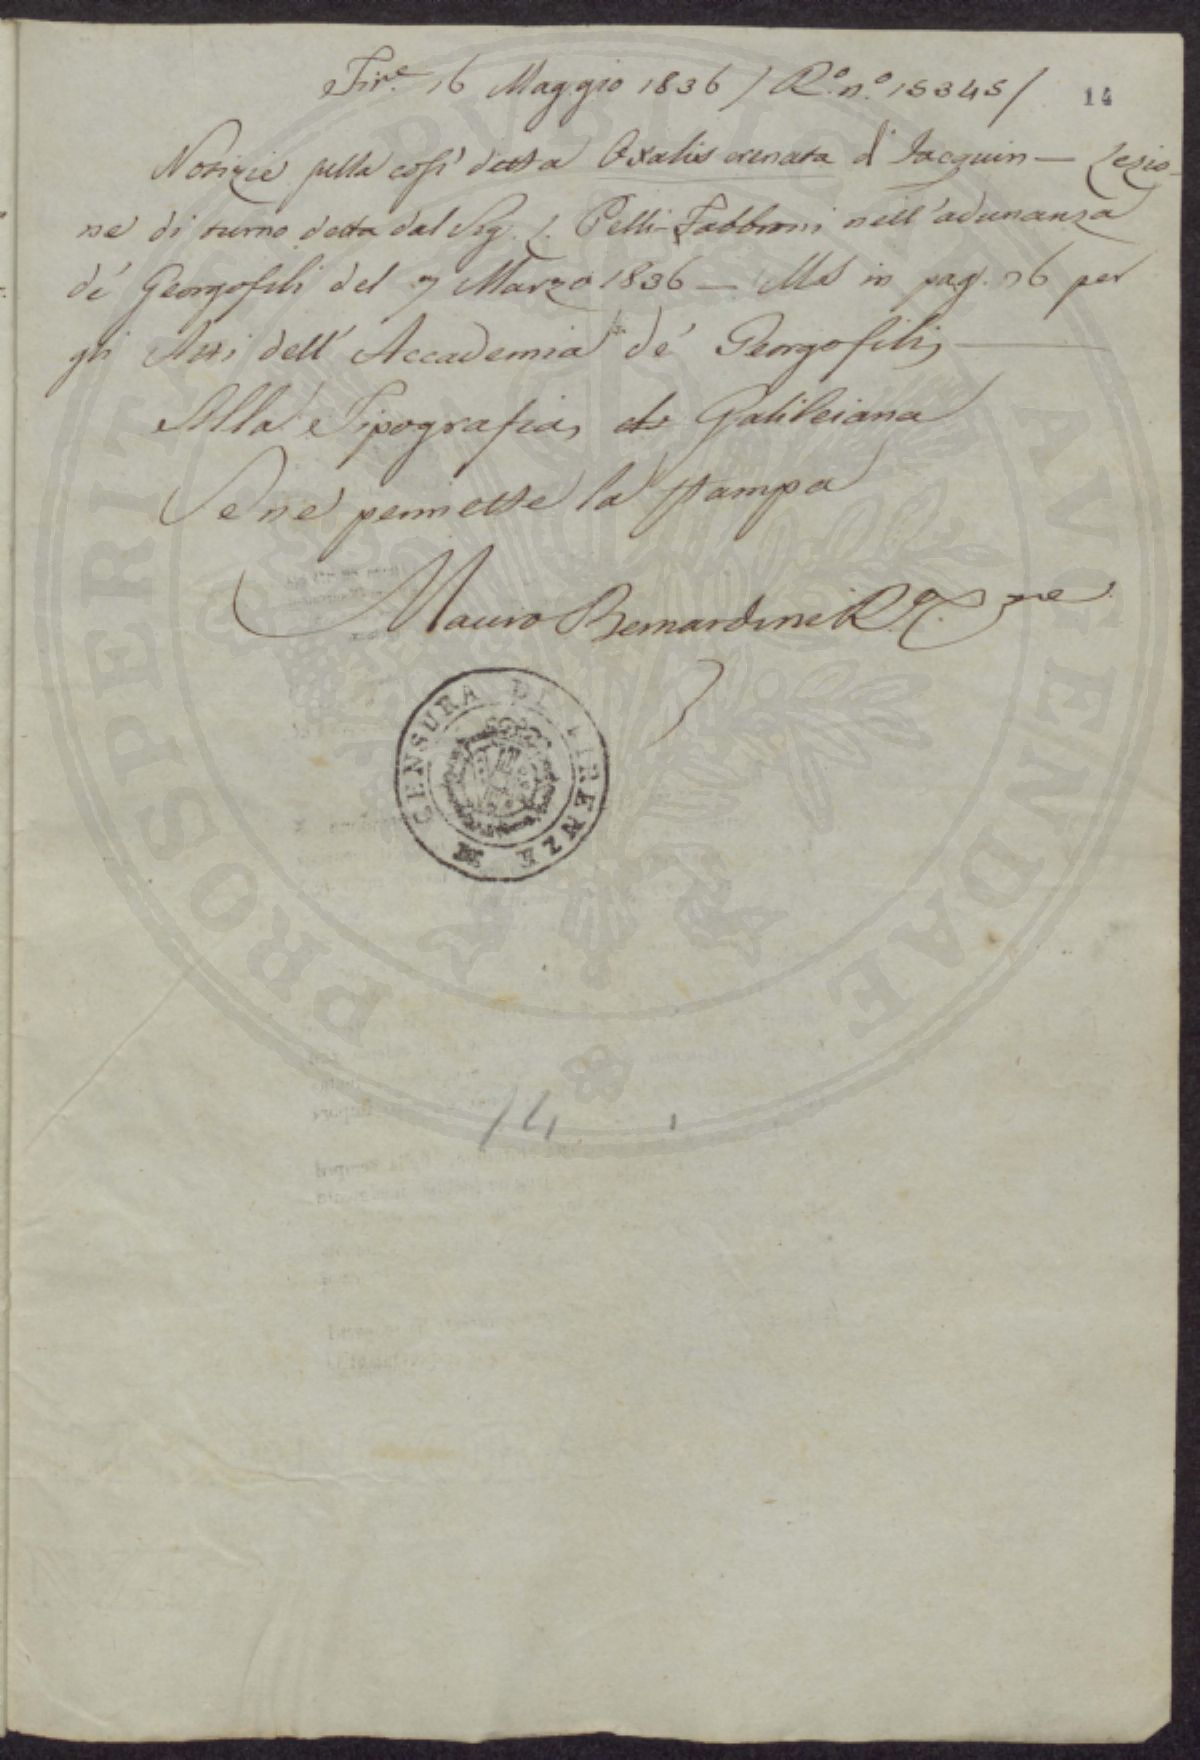 Fir.e 16 Maggio 1836 / R.o n.o 15345 /
14
Notizie sulla così detta Oxalis crenata d' Jacquin — Lezio-
ne di turno detta dal Sig. L. Pelli-Fabbroni nell' adunanza
de' Georgofili del 7 Marzo 1836 — Ms in pag. 26 per
gli Atti dell' Accademia de' Georgofili,
Alla Tipografia Galileiana
Se ne permette la stampa
Mauro Bernardini R.o C.
CENSURA DI FIRENZE
14
PROSPERITATI PUBLICAE AUGENDAE